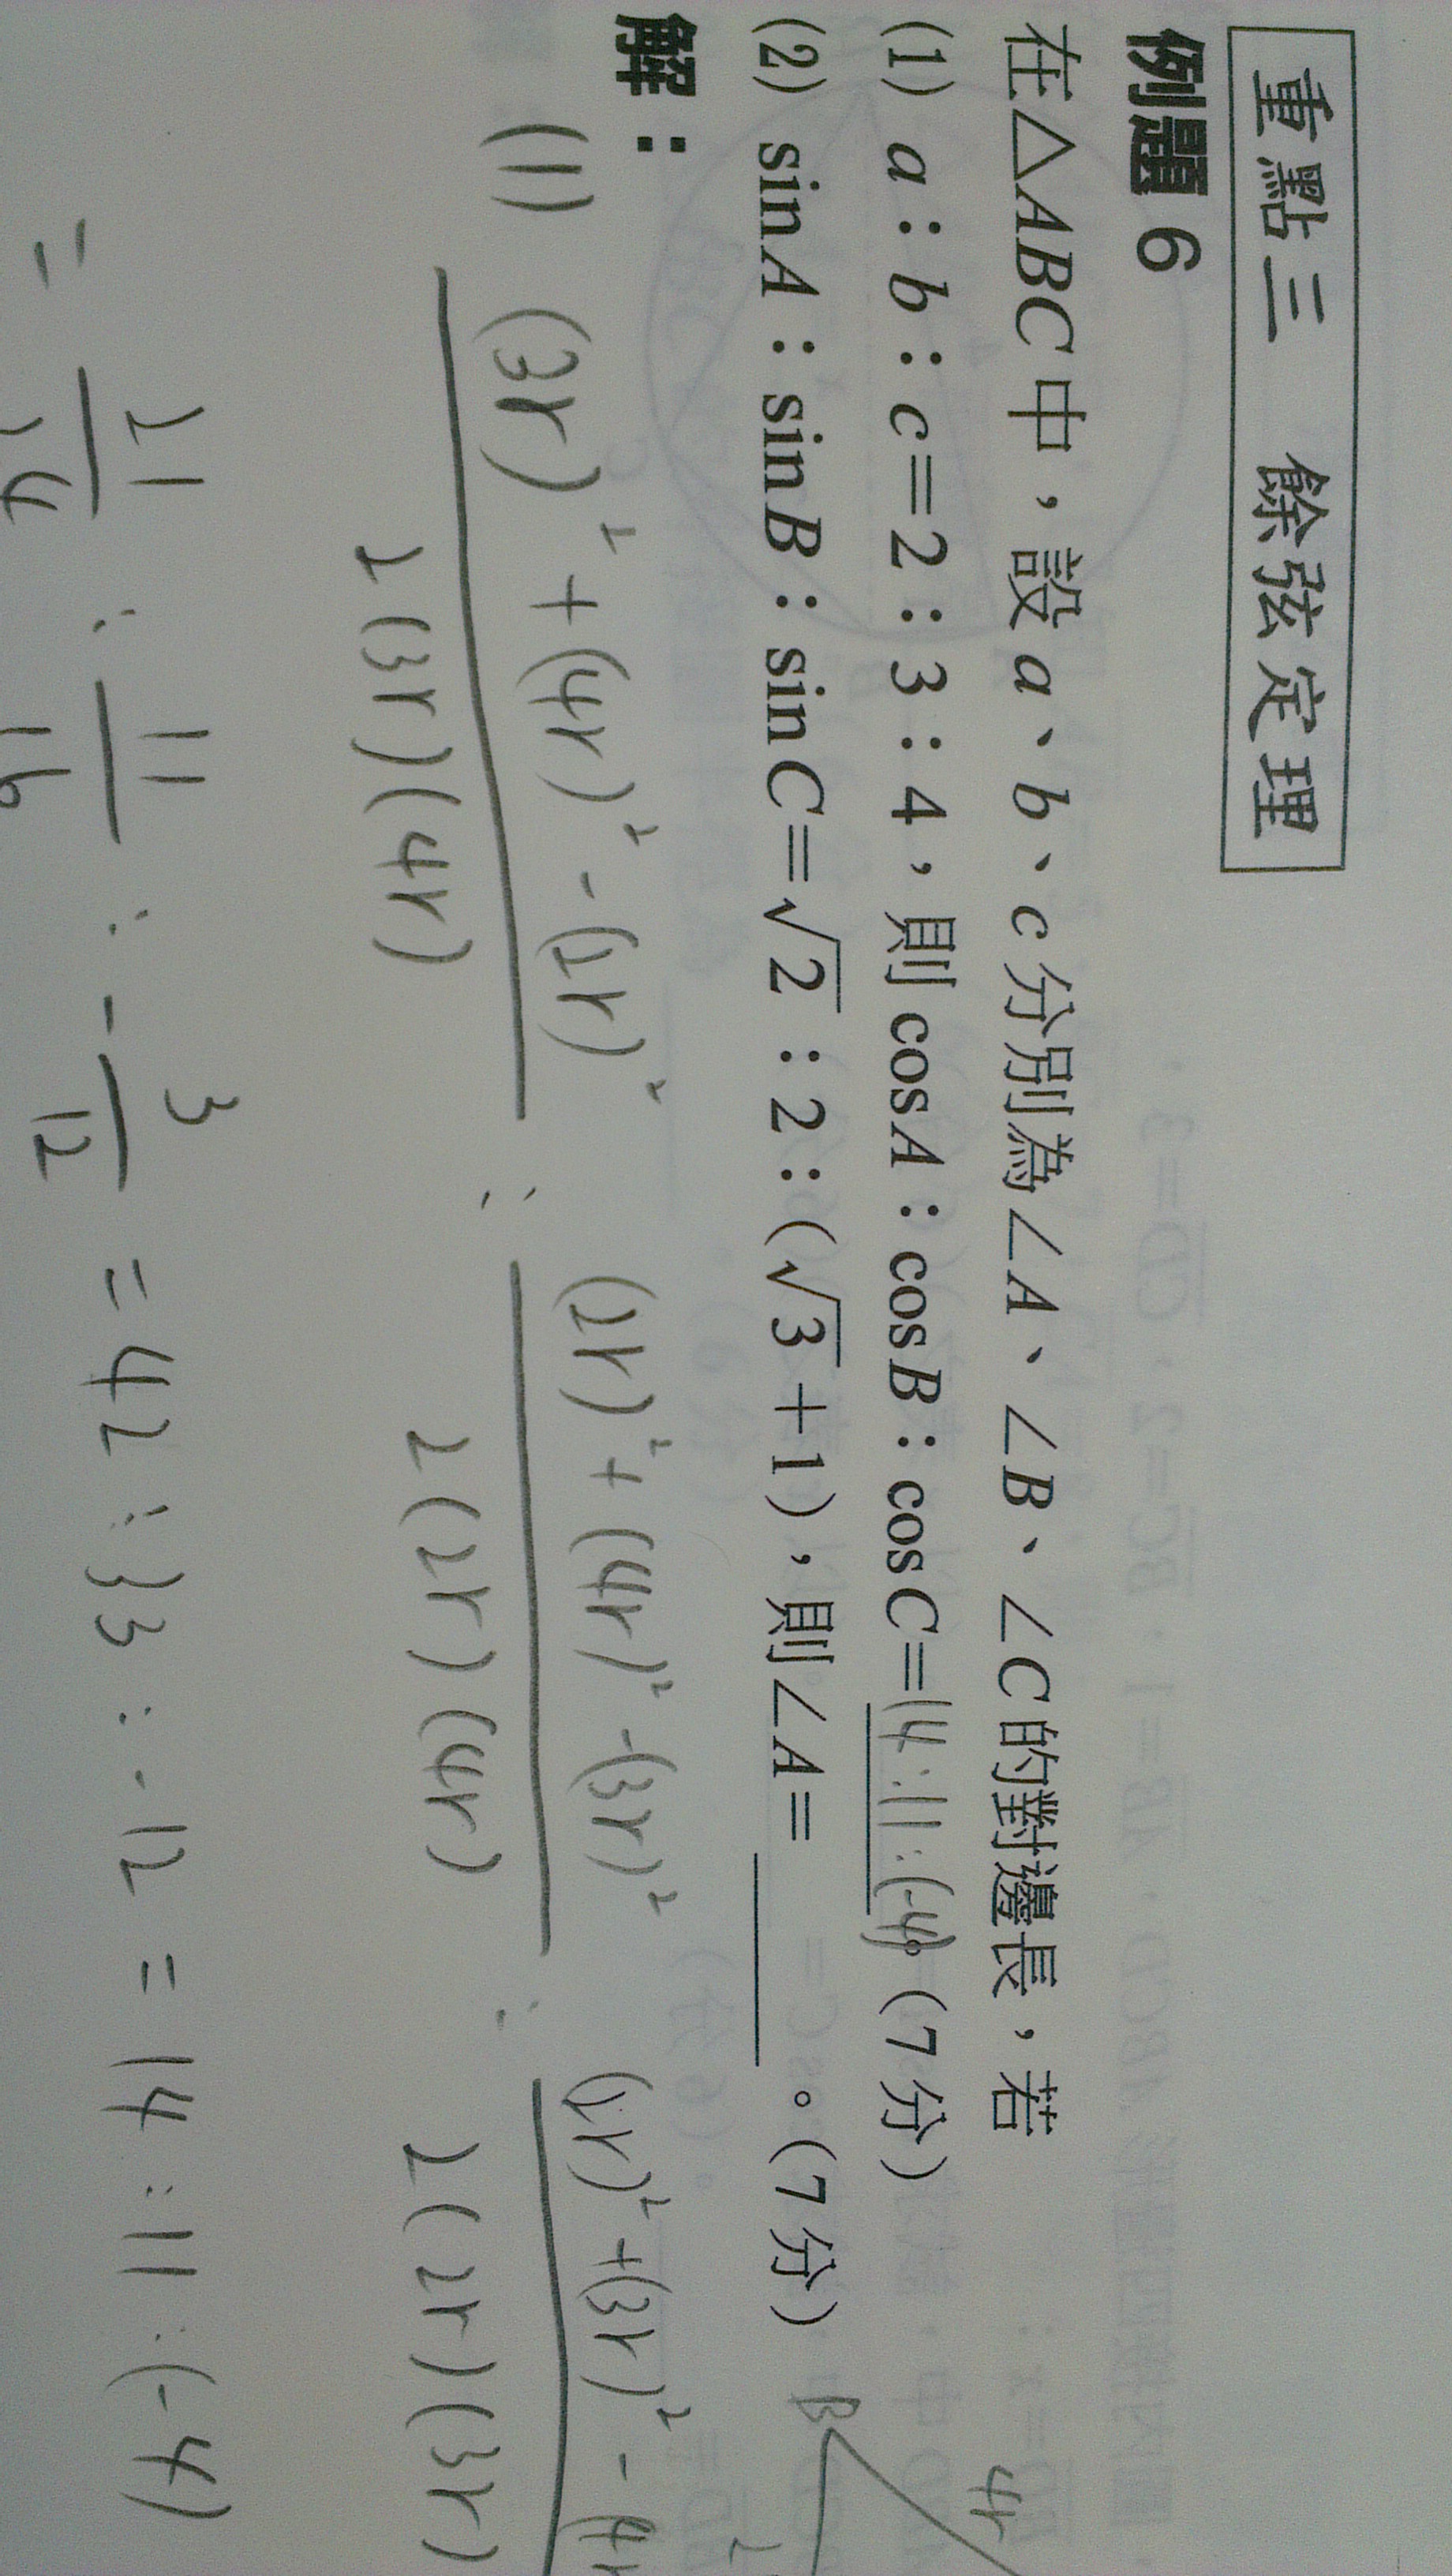 重點三 餘弦定理
例題 6
在△ABC中，設 a、b、c 分別為∠A、∠B、∠C的對邊長，若
(1) a：b：c=2：3：4，則 cosA：cosB：cosC=14:11:(-4)。(7分)
(2) sinA：sinB：sinC=√2：2：(√3+1)，則∠A=______。(7分)
解：
(1) (3r)²+(4r)²-(2r)² / 2(3r)(4r) : (2r)²+(4r)²-(3r)² / 2(2r)(4r) : (2r)²+(3r)²-(4r / 2(2r)(3r)
= 21/24 : 11/16 : -3/12 = 42:33:-12 = 14:11:(-4)
B
4r